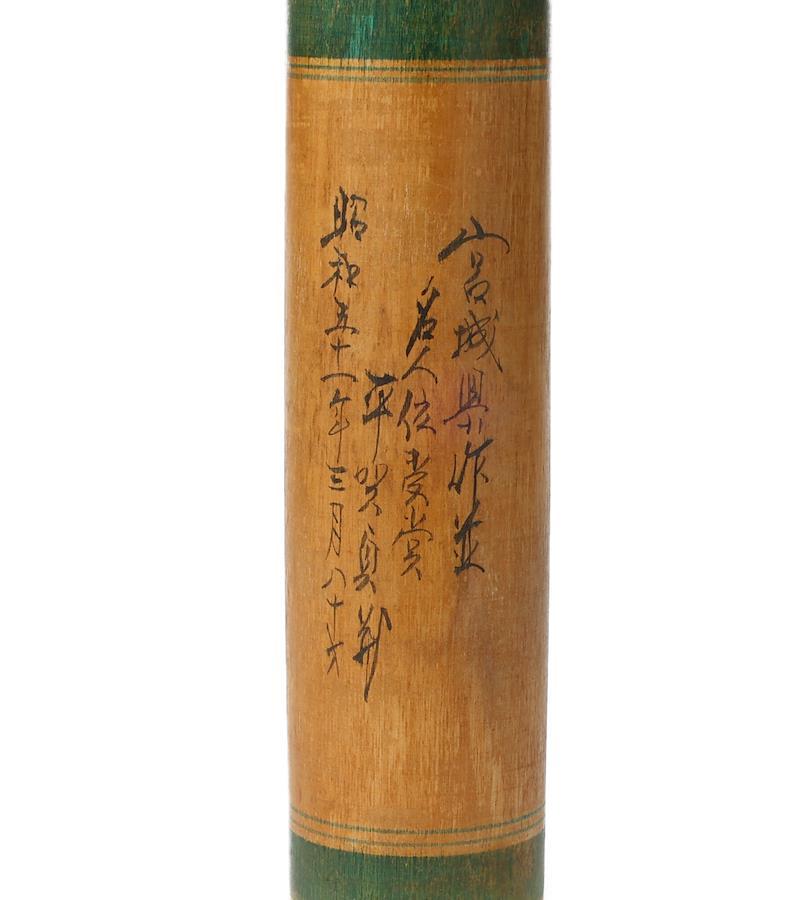 宮城県作並
名人位受賞
平賀貞蔵
昭和五十一年三月八十才